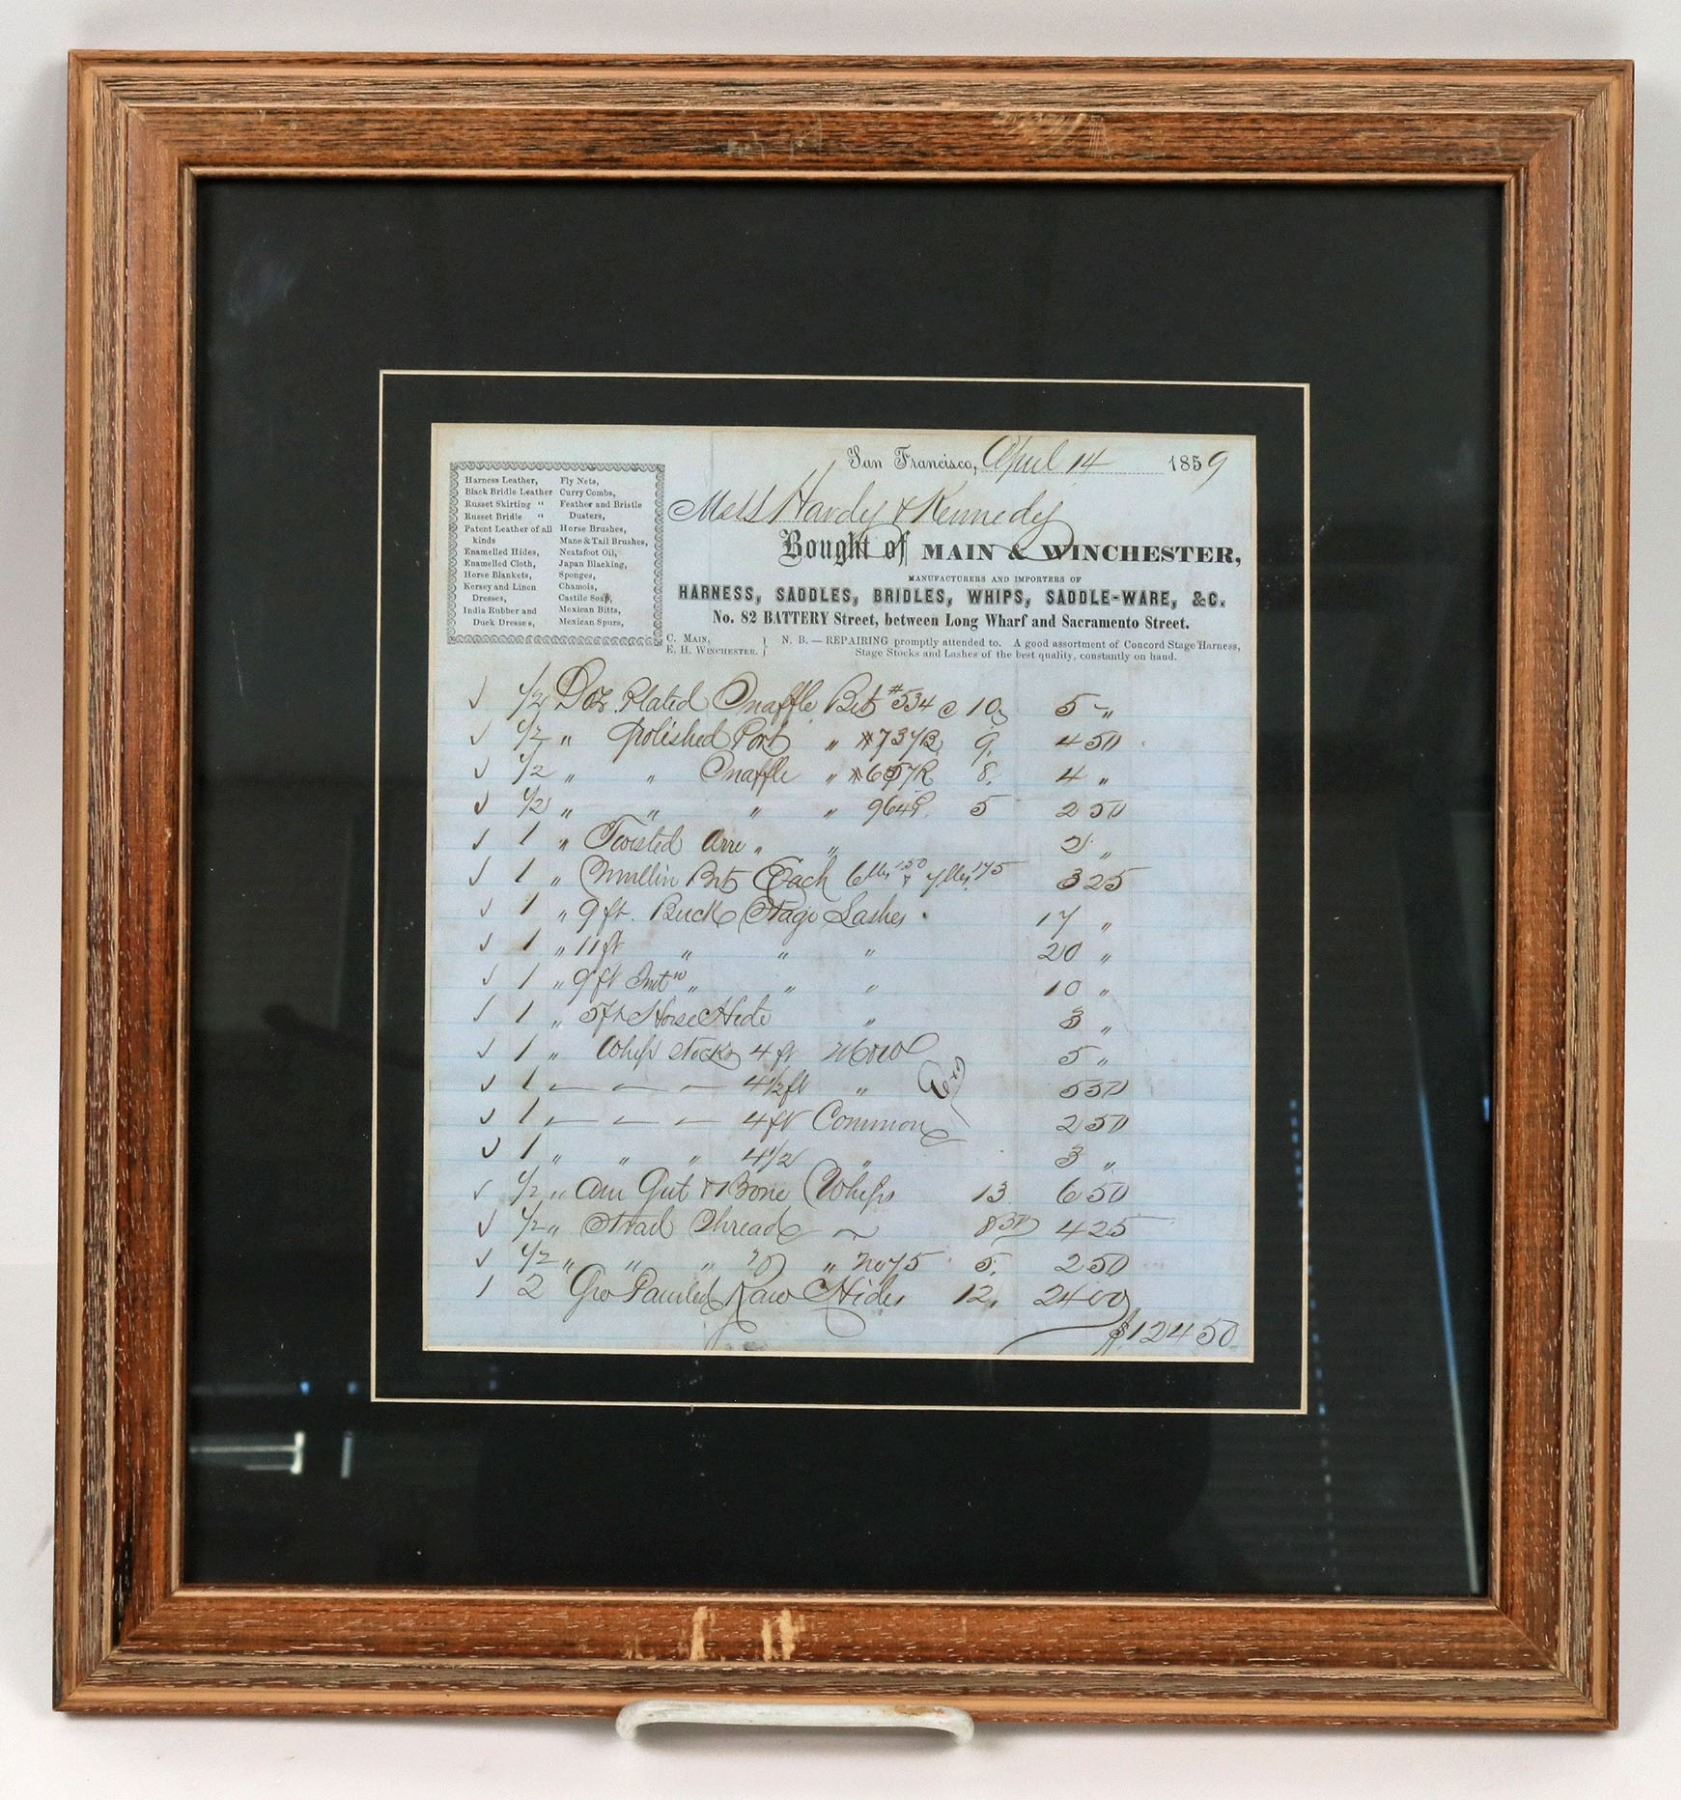 San Francisco, April 14 1859
Mess Hardy & Kennedy
Bought of MAIN & WINCHESTER,
MANUFACTURERS AND IMPORTERS OF
HARNESS, SADDLES, BRIDLES, WHIPS, SADDLE-WARE, &C.
No. 82 BATTERY Street, between Long Wharf and Sacramento Street.
C. MAIN, }
E. H. WINCHESTER. }
N. B. — REPAIRING promptly attended to. A good assortment of Concord Stage Harness,
Stage Stocks and Lashes of the best quality, constantly on hand.
Harness Leather,
Black Bridle Leather
Russet Skirting "
Russet Bridle "
Patent Leather of all
kinds
Enamelled Hides,
Enamelled Cloth,
Horse Blankets,
Kersey and Linen
Dresses,
India Rubber and
Duck Dresses,
Fly Nets,
Curry Combs,
Feather and Bristle
Dusters,
Horse Brushes,
Mane & Tail Brushes,
Neatsfoot Oil,
Japan Blacking,
Sponges,
Chamois,
Castile Soap,
Mexican Bitts,
Mexican Spurs,
1/2 Doz Plated Snaffle Bits #534 @ 10, 5 - "
1/2 " polished Port " #737B, 9, 4 50
1/2 " " Snaffle " #657R 8, 4 "
1/2 " " " " 5 2 50
1 " Twisted " " 2 "
1 " Mullin Bits Each 6 150 & 7 175 3 25
1 " 9 ft. Buck Stage Lashes 17 "
1 " 11 ft " " " 20 "
1 " 9 ft " " " 10 "
1 " 5 ft Horse Hide " 3 "
1 " Whip stocks 4 ft 5 "
1 — — — 4 1/2 ft " 5 50
1 — — — 4 ft Common 2 50
1 " " " 4 1/2 " 3 "
1/2 " Am Gut & Bone Whips 13 6 50
1/2 " Thread 8 50 4 25
1/2 " " " " No 75 5, 2 50
2 Gro Painted Raw Hides 12, 24 00
$124 50